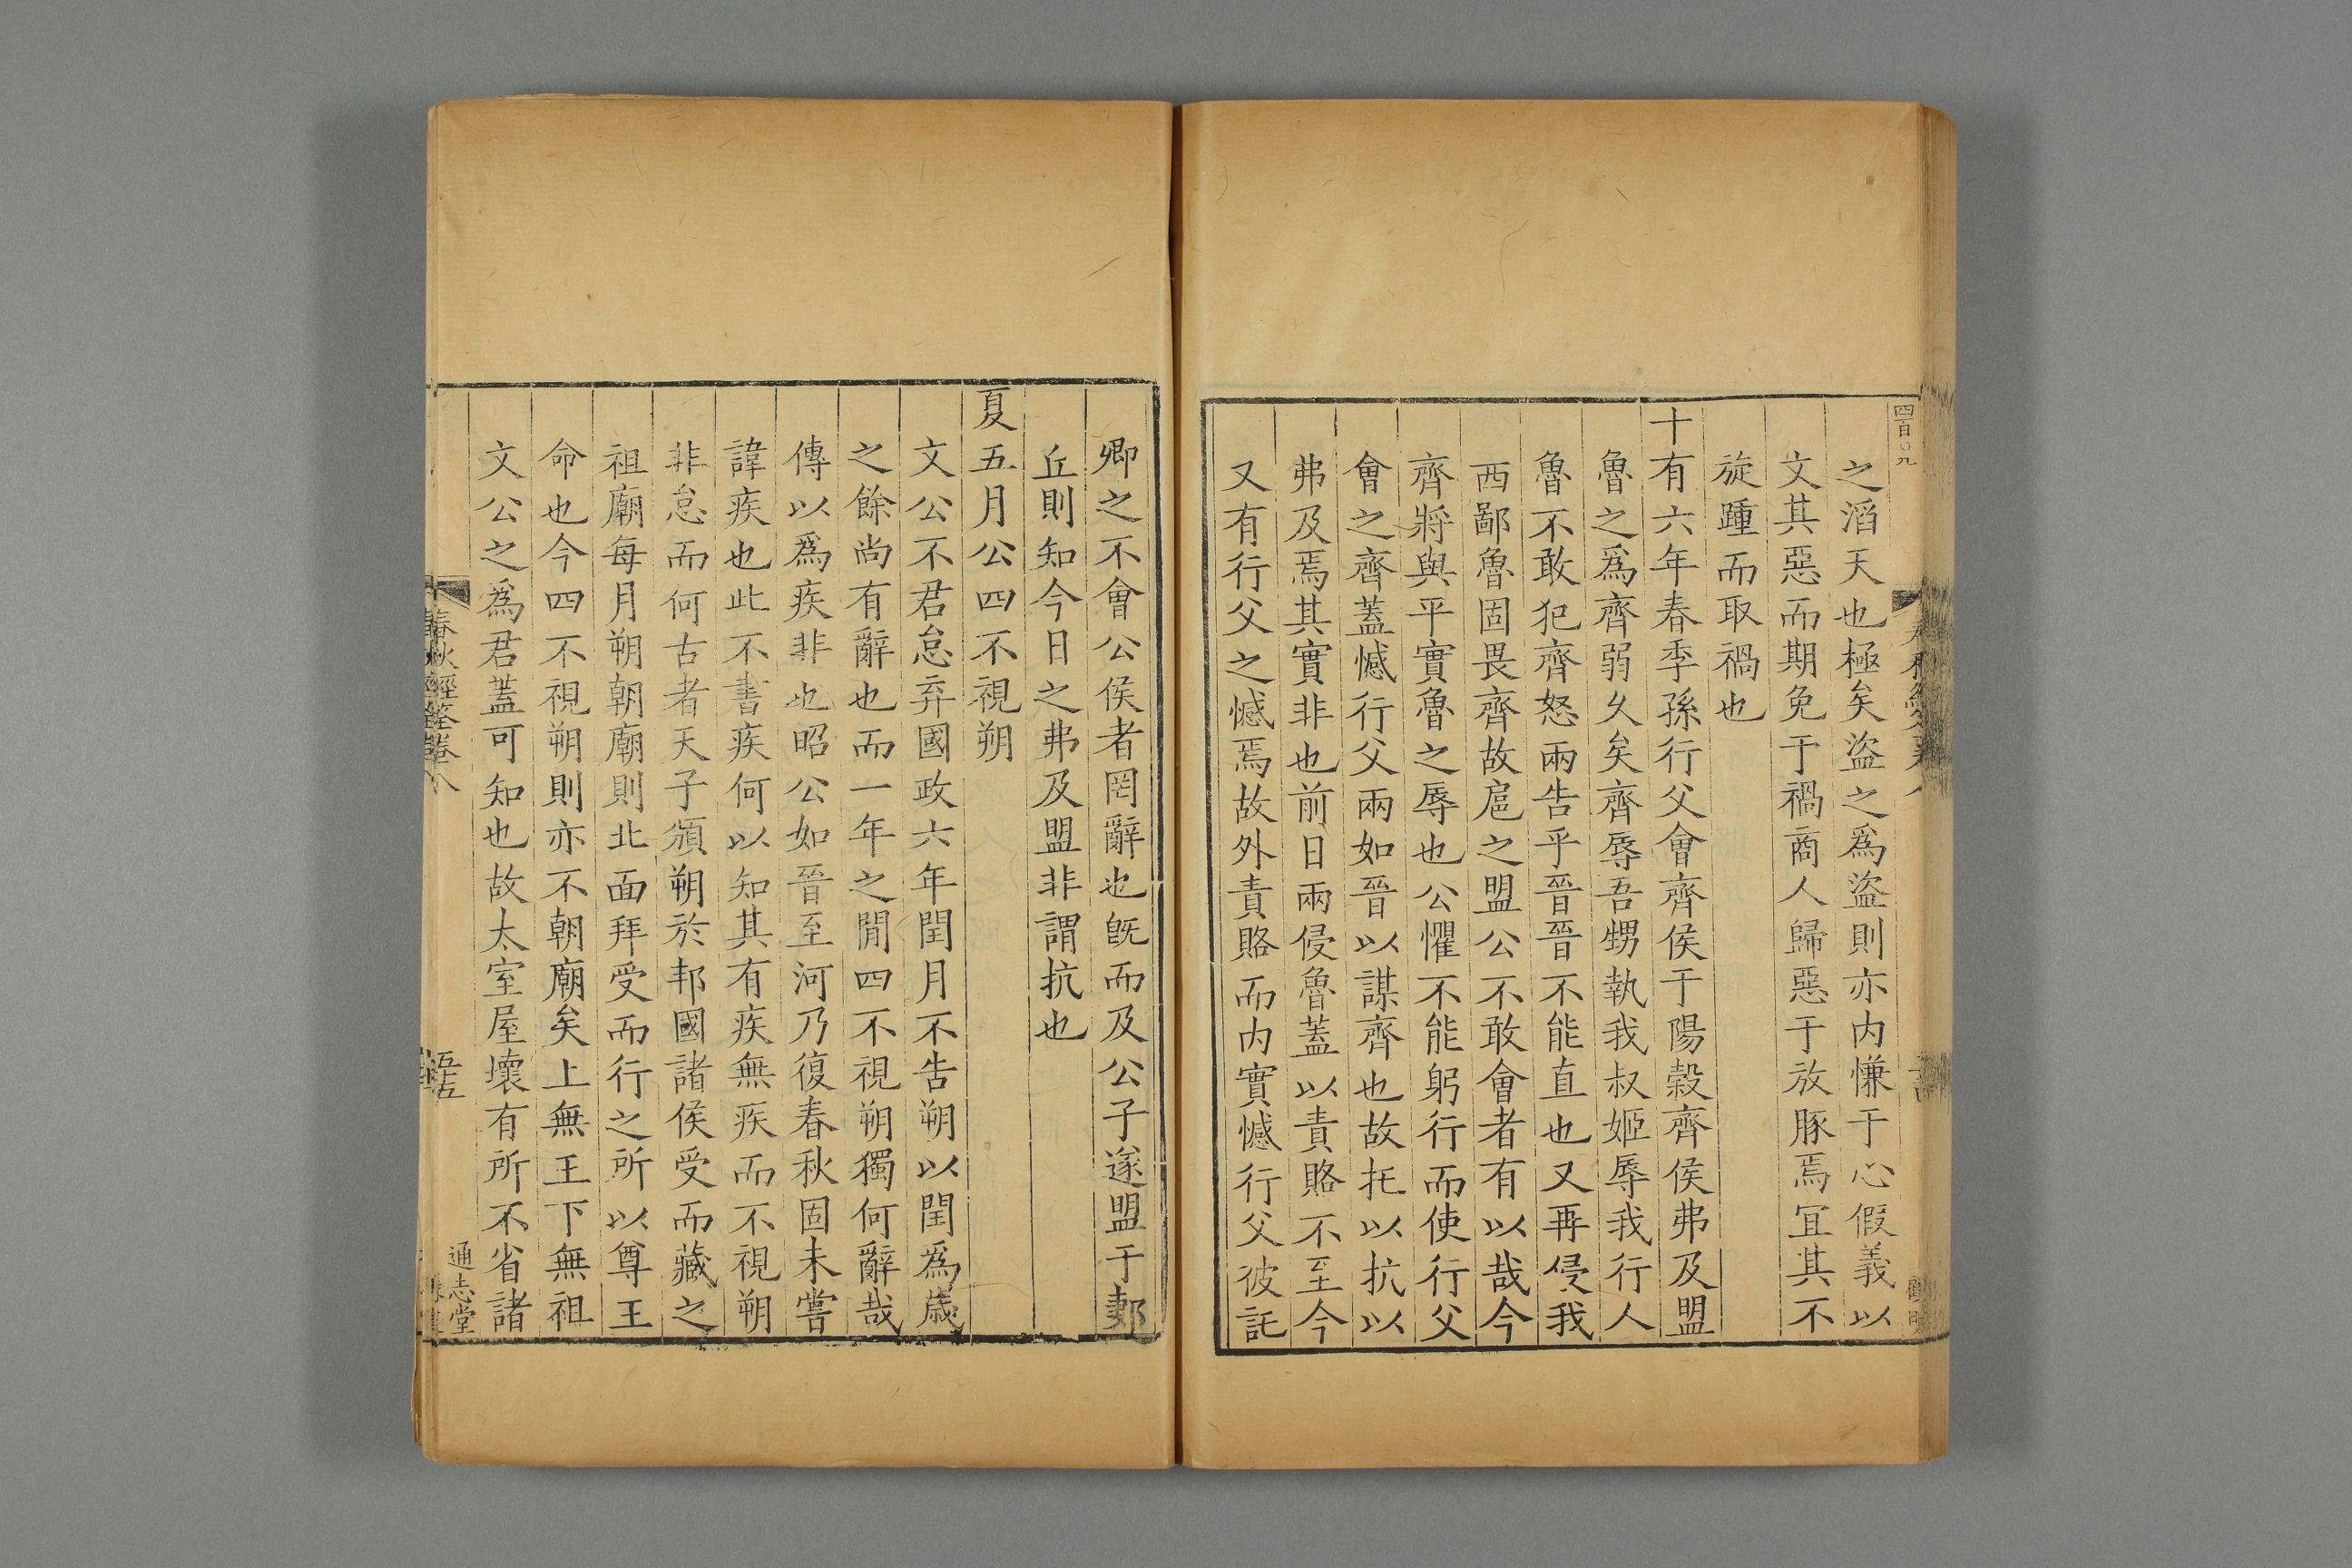 四百〇九
之滔天也極矣盜之爲盜則亦内慊于心假義以
文其惡而期免于禍商人歸惡于放豚焉宜其不
旋踵而取禍也
十有六年春季孫行父會齊侯于陽穀齊侯弗及盟
魯之爲齊弱久矣齊辱吾甥執我叔姬辱我行人
魯不敢犯齊怒兩告乎晉晉不能直也又再侵我
西鄙魯固畏齊故扈之盟公不敢會者有以哉今
齊將與平實魯之辱也公懼不能躬行而使行父
會之齊蓋憾行父兩如晉以謀齊也故托以抗以
弗及焉其實非也前日兩侵魯蓋以責賂不至今
又有行父之憾焉故外責賂而内實憾行父彼託
卿之不會公侯者罔辭也旣而及公子遂盟于郪
丘則知今日之弗及盟非謂抗也
夏五月公四不視朔
文公不君怠弃國政六年閏月不告朔以閏爲歲
之餘尚有辭也而一年之閒四不視朔獨何辭哉
傳以爲疾非也昭公如晉至河乃復春秋固未嘗
諱疾也此不書疾何以知其有疾無疾而不視朔
非怠而何古者天子頒朔於邦國諸侯受而藏之
祖廟每月朔朝廟則北面拜受而行之所以尊王
命也今四不視朔則亦不朝廟矣上無王下無祖
文公之爲君蓋可知也故太室屋壞有所不省諸
春秋經筌卷八
通志堂